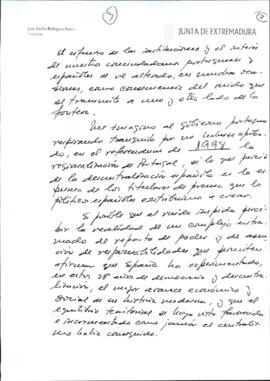 Juan Carlos Rodríguez Ibarra
JUNTA DE EXTREMADURA
El esfuerzo de las instituciones y el interés
de nuestros conciudadanos portugueses y
españoles se ve alterado, en muchas oca-
siones, como consecuencia del ruido que
se transmite a uno y otro lado de la
frontera.
Me imagino al Gobierno portugués
respirando tranquilo por no haberse aproba-
do, en el referendum de 1998 la
regionalización de Portugal, si lo que percibe
de la descentralización española es la
de los titulares de prensa que los
políticos españoles contribuimos a crear.
Es posible que el ruido impida perci-
bir la realidad de un complejo entra-
mado de reparto de poder y de asun-
ción de responsabilidades que permiten
afirmar que España ha experimentado,
en estos 28 años de democracia y descentra-
lización, el mayor avance económico y
social de su historia moderna, y que el
equilibrio territorial se haya visto favorecido
e incrementado como jamás el centralis-
mo había conseguido.